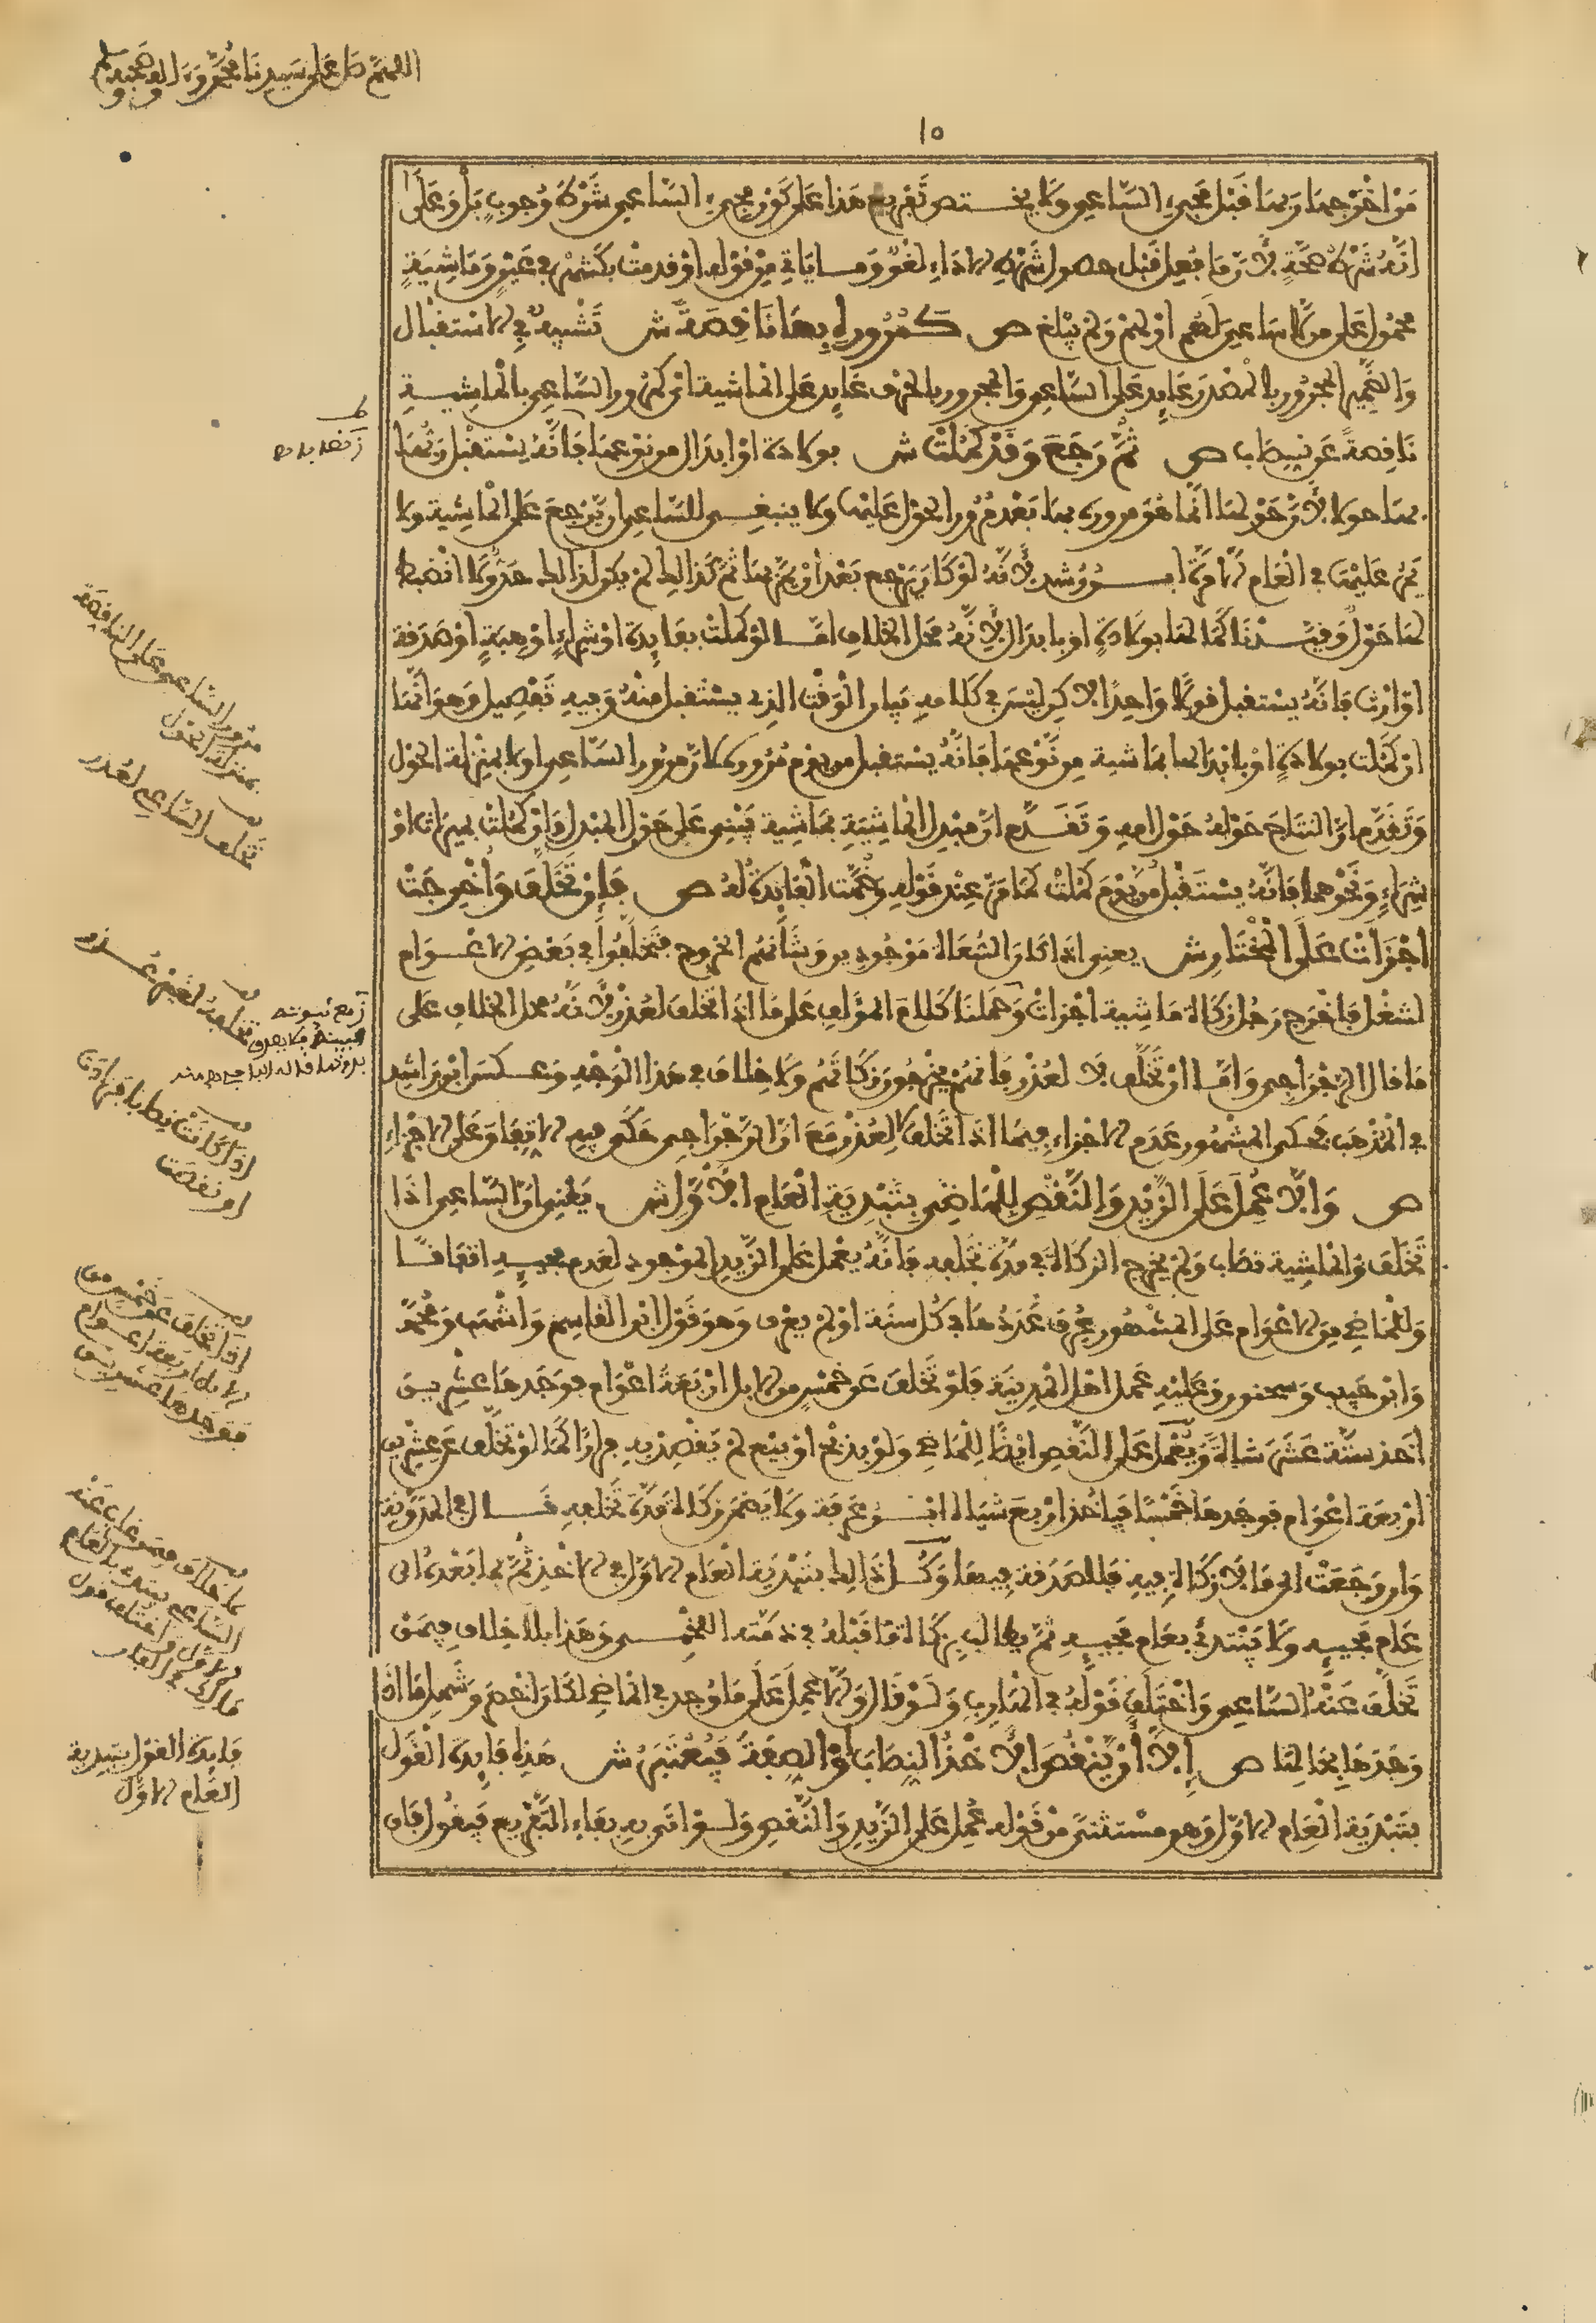 اللهم صل على سيدنا محمد وءاله وصحبه وسلم
١٥
من اخرجها وبها قبل مجيء الساعي ولا يختص تفريع هذا على كون مجيء الساعي شرط وجوب بل وعلى
انه شرط صحة لان ما فعل قبل حصول شرطه الاداء لغو وما ياتي من قوله او قدمت بكشهر في عين وماشية
محمول على من لا ساعي لهم او لهم ولم يبلغ ص كمروره بها ناقصة ش تشبيه في الاستقبال
والضمير المجرور بالمصدر عايد على الساعي والمجرور بالحرف عايد على الماشية اي كمرور الساعي بالماشية
ناقصة عن نصاب ص ثم رجع وقد كملت ش بولادة او ابدال من نوعها فانه يستقبل ربها
بها حولا لان حولها انما هو مروره بها بعد مرور الحول عليها ولا ينبغي للساعي ان يرجع على الماشية ولا
يمر عليها في العام الا مرة ابن رشد لانه لو كان يرجع بعد ان يمر بها ثم كذالك لم يكن لذالك حد ولا انضبط
لها حول وقيدنا كمالها بولادة او بابدال لانه محل الخلاف اما لو كملت بفايدة او شراء او هبة او صدقة
او ارث فانه يستقبل قولا واحدا لاكن ليس في كلامه بيان الوقت الذي يستقبل منه وفيه تفصيل وهو انها
ان كملت بولادة او بابدالها بماشية من نوعها فانه يستقبل من يوم مروره لان مرور الساعي اولا بمنزلة الحول
وتقدم ان النتاج حوله حول امه وتقدم ان مبدل الماشية بماشية يبني على حول المبدل وان كملت بميراث او
شراء ونحوهما فانه يستقبل من يوم كملت كما مر عند قوله وضمت الفايدة له ص فان تخلف واخرجت
اجزات على المختار ش يعني اذا كان السعاة موجودين وشانهم الخروج فتخلفوا في بعض الاعوام
لشغل فاخرج رجل زكاة ماشية اجزات وحملنا كلام المؤلف على ما اذا تخلف لعذر لانه محل الخلاف على
ما قال الرجراجي واما ان تخلف لا لعذر فانهم يخرجون زكاتهم ولا خلاف في هذا الوجه وعكس ابن راشد
في المذهب فحكى المشهور عدم الاجزاء فيما اذا تخلف لا لعذر مع ان الرجراجي حكى فيه الاتفاق على الاجزاء
ص والا عمل على الزيد والنقص للماضي بتبدية العام الاول ش يعني ان الساعي اذا
تخلف والماشية نصاب ولم يخرج الزكاة في مدة تخلفه فانه يعمل على الزيد الموجود لعدم مجيئه اتفاقا
وللماضي من الاعوام على المشهور عرف عددها في كل سنة او لم يعرف وهو قول ابن القاسم واشهب ومحمد
وابن حبيب وسحنون وعليه عمل اهل المدينة فلو تخلف عن خمس من الابل اربعة اعوام فوجدها عشرين
اخذ ستة عشر شاة ويعمل على النقص ايضا للماضي ولو بذبح او بيع لم يقصد به فرارا كما لو تخلف عن عشرين
اربعة اعوام فوجدها خمسا فياخذ اربع شياه ابن عرفة ولا يضمن زكاة مدة تخلفه قال في المدونة
وان رجعت الى ما لا زكاة فيه فلا صدقة فيها وكل ذالك بتبدية العام الاول في الاخذ ثم بما بعده الى
عام مجيئه ولا يبتدئ بعام مجيئه ثم يطالب بزكاة ما قبله في ذمته اللخمي وهذا بلا خلاف فيمن
تخلف عنه الساعي واختلف قوله في الهارب ولو قال والا عمل على ما وجد في الماضي لكان اخصر وشمل ما اذا
وجدها بحالها ص الا ان ينقص الاخذ النصاب او الصفة فيعتبر ش هذه فايدة القول
بتبدية العام الاول وهو مستثنى من قوله عمل على الزيد والنقص ولو اتى به بفاء التفريع فيقول فان
مرور الساعي على الناقصة
بمنزلة الحول
تخلف الساعي لعذر
تخلفه لغير عذر
اذا كانت نصابا فزادت
او نقصت
اذا تخلف عن خمس من
الابل اربعة اعوام
فوجدها عشرين
لا خلاف فيمن غاب عنه
الساعي يبتدء بالعام
الاول واختلف قول
مالك في الهارب
فايدة القول بتبدية
العام الاول